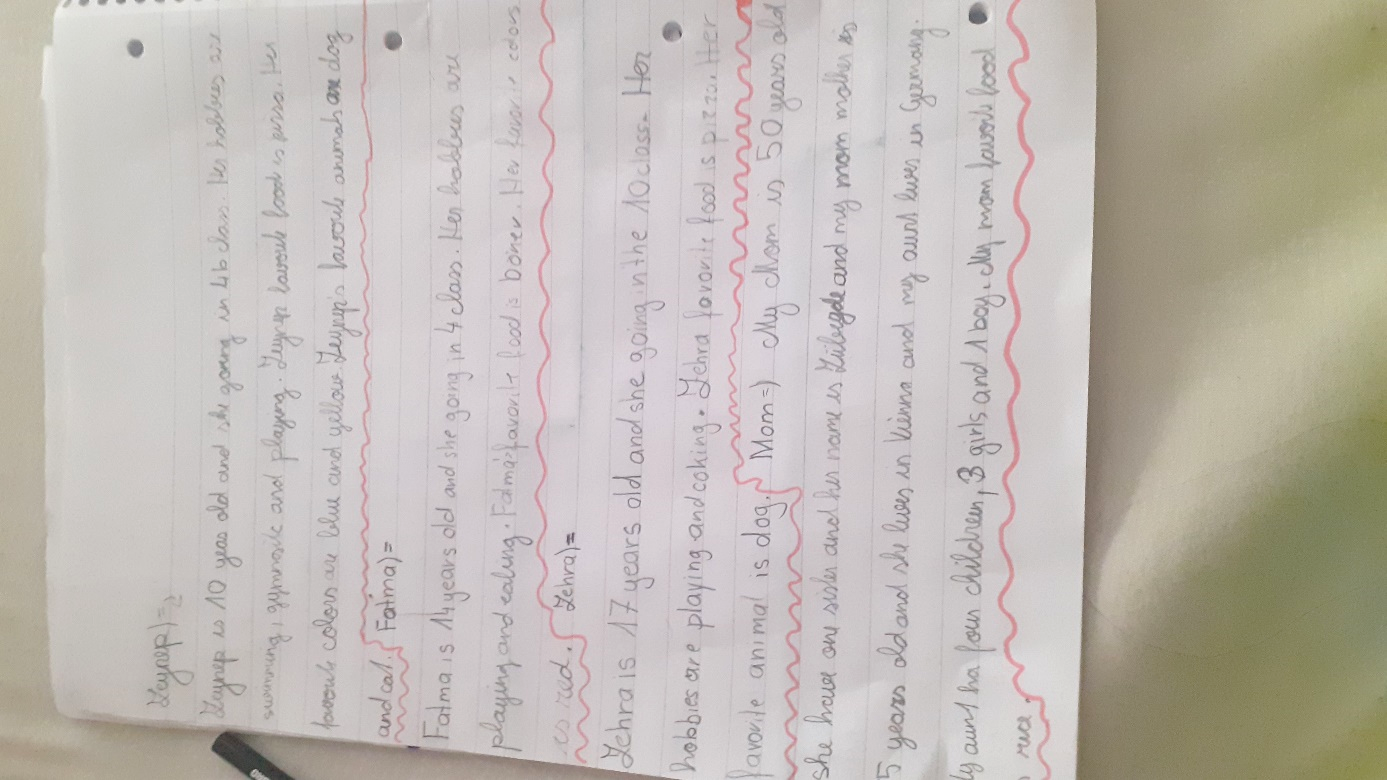 Zeynep)=
Zeynep is 10 yeas old and she going in 4b class. Her hobbies are
swimming, gymnastik and playing. Zeynep favourite food is pissa. Her
favourite colors are blue and yellow. Zeynep's favourite animals are dog
and cat. Fatma)=
Fatma is 14 years old and she going in 4 class. Her hobbies are
playing and eating. Fatma's favorite food is boner. Her favorite colors
is red. Zehra)=
Zehra is 17 years old and she going in the 10 class. Her
hobbies are playing and coking. Zehra favorite food is pizza. Her
favorite animal is dog. Mom=) My Mom is 50 years old
she have one sister and her name is and my mom mother is
5 years old and she lives in Vienna and my aunt lives in Germany.
y aunt ha four children, 3 girls and 1 boy. My mom favorit food
rice.